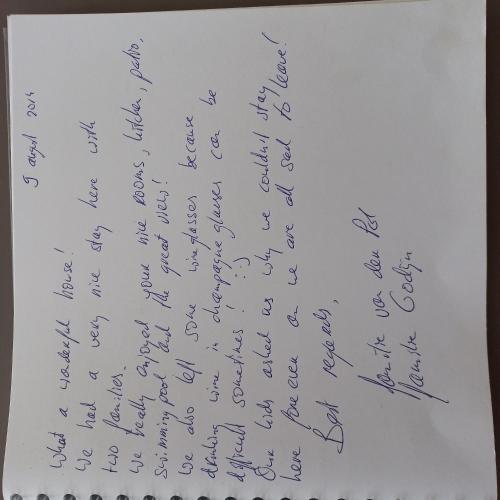 9 august 2014
What a wonderful house!
We had a very nice stay here with
two families.
We really enjoyed your nice rooms, kitchen, patio,
swimming pool and the great view!
We also left some wineglasses because
drinking wine in champagne glasses can be
difficult sometimes! :-)
Our kids asked us why we couldn't stay
here forever and we are all sad to leave!
Best regards,
familie van den Pol
familie Godijn